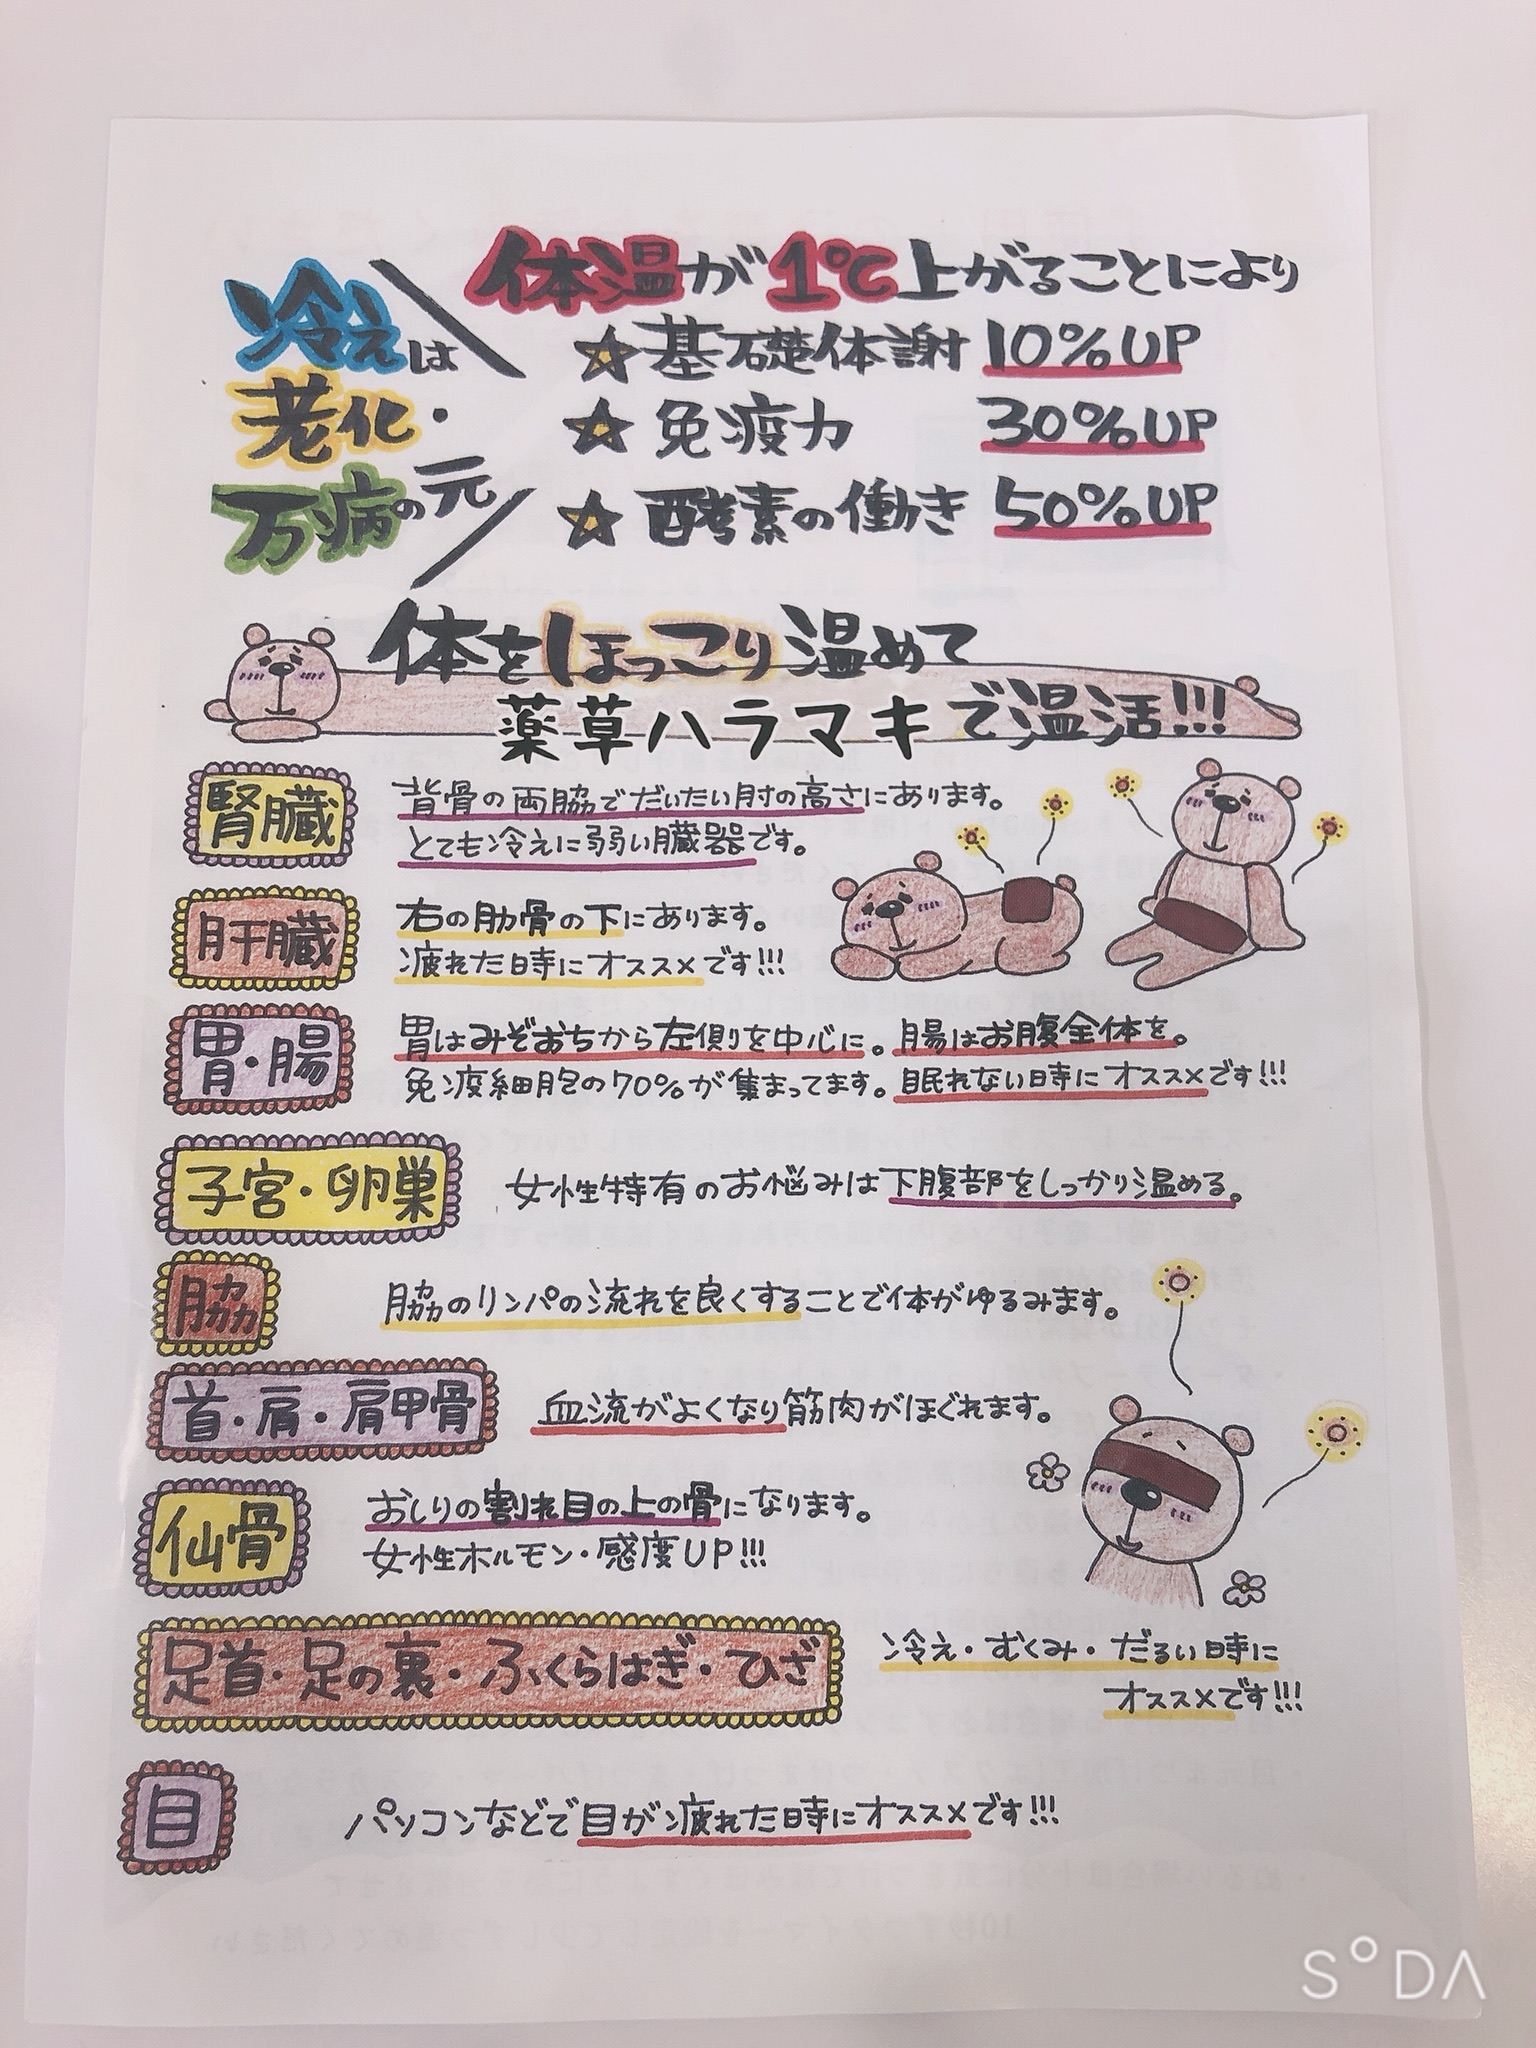 冷えは
老化・
万病の元
体温が1℃上がることにより
☆基礎体謝 10%UP
☆免疫力 30%UP
☆酵素の働き 50%UP
体をほっこり温めて
薬草ハラマキで温活!!!
腎臓
背骨の両脇でだいたい肘の高さにあります。
とても冷えに弱い臓器です。
肝臓
右の肋骨の下にあります。
疲れた時にオススメです!!!
胃・腸
胃はみぞおちから左側りを中心に。腸はお腹全体を。
免疫細胞の70%が集まってます。眠れない時にオススメです!!!
子宮・卵巣
女性特有のお悩みは下腹部をしっかり温める。
脇
脇のリンパの流れを良くすることで体がゆるみます。
首・肩・肩甲骨
血流がよくなり筋肉がほぐれます。
仙骨
おしりの割れ目の上の骨になります。
女性ホルモン・感度UP!!!
足首・足の裏・ふくらはぎ・ひざ
冷え・むくみ・だるい時に
オススメです!!!
目
パソコンなどで目が疲れた時にオススメです!!!
SODA